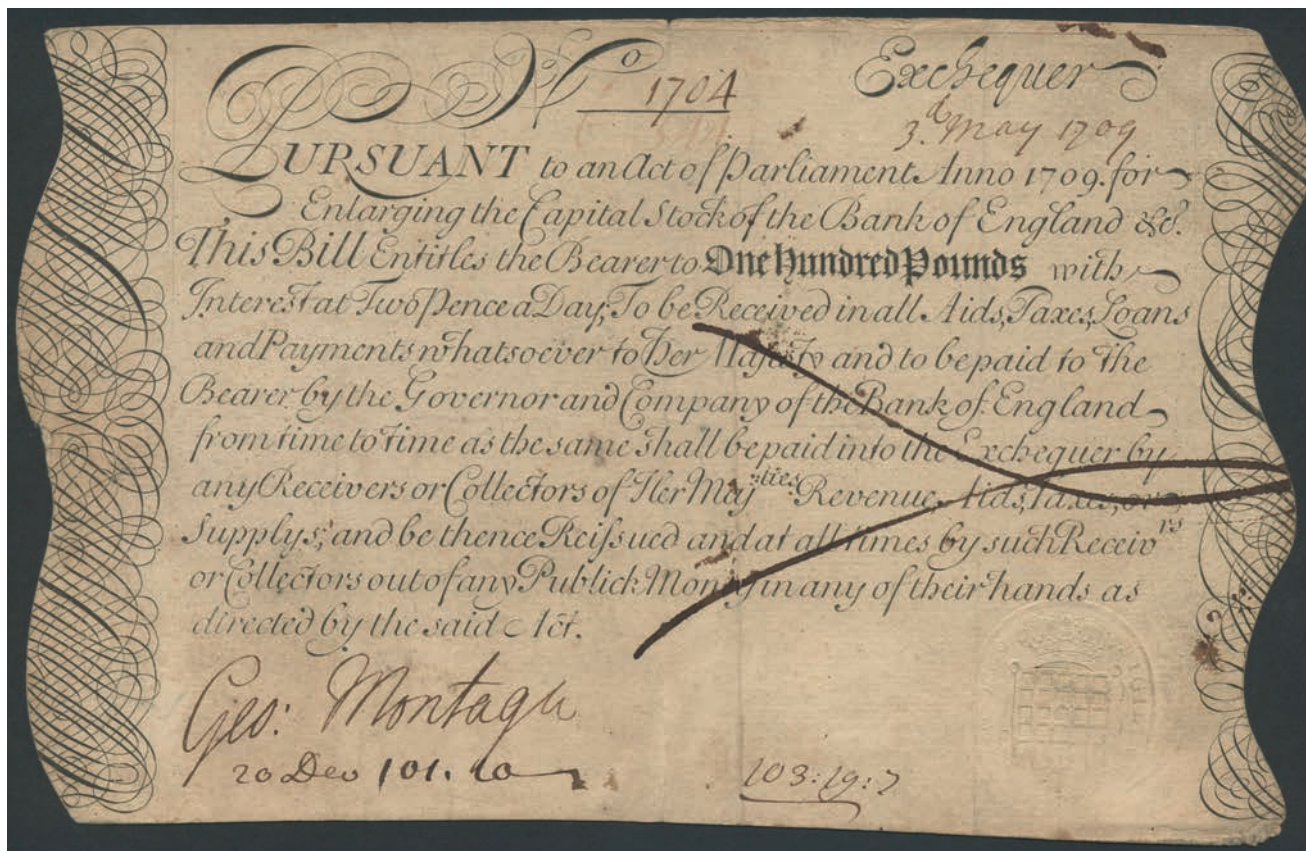 No 1704 Exchequer
3d May 1709
PURSUANT to an Act of Parliament Anno 1709. for
Enlarging the Capital Stock of the Bank of England &c.
This Bill Entitles the Bearer to One Hundred Pounds with
Interest at Two Pence a Day, To be Received in all Aids, Taxes, Loans
and Payments whatsoever to Her Majesty and to be paid to the
Bearer by the Governor and Company of the Bank of England
from time to time as the same shall be paid into the Exchequer by
any Receivers or Collectors of Her Majties Revenue, Aids, Taxes, or
Supplys; and be thence Reissued and at all times by such Receivrs
or Collectors out of any Publick Money in any of their hands as
directed by the said Act.
Geo: Montagu
20 Dev 101. 10
103:19:7